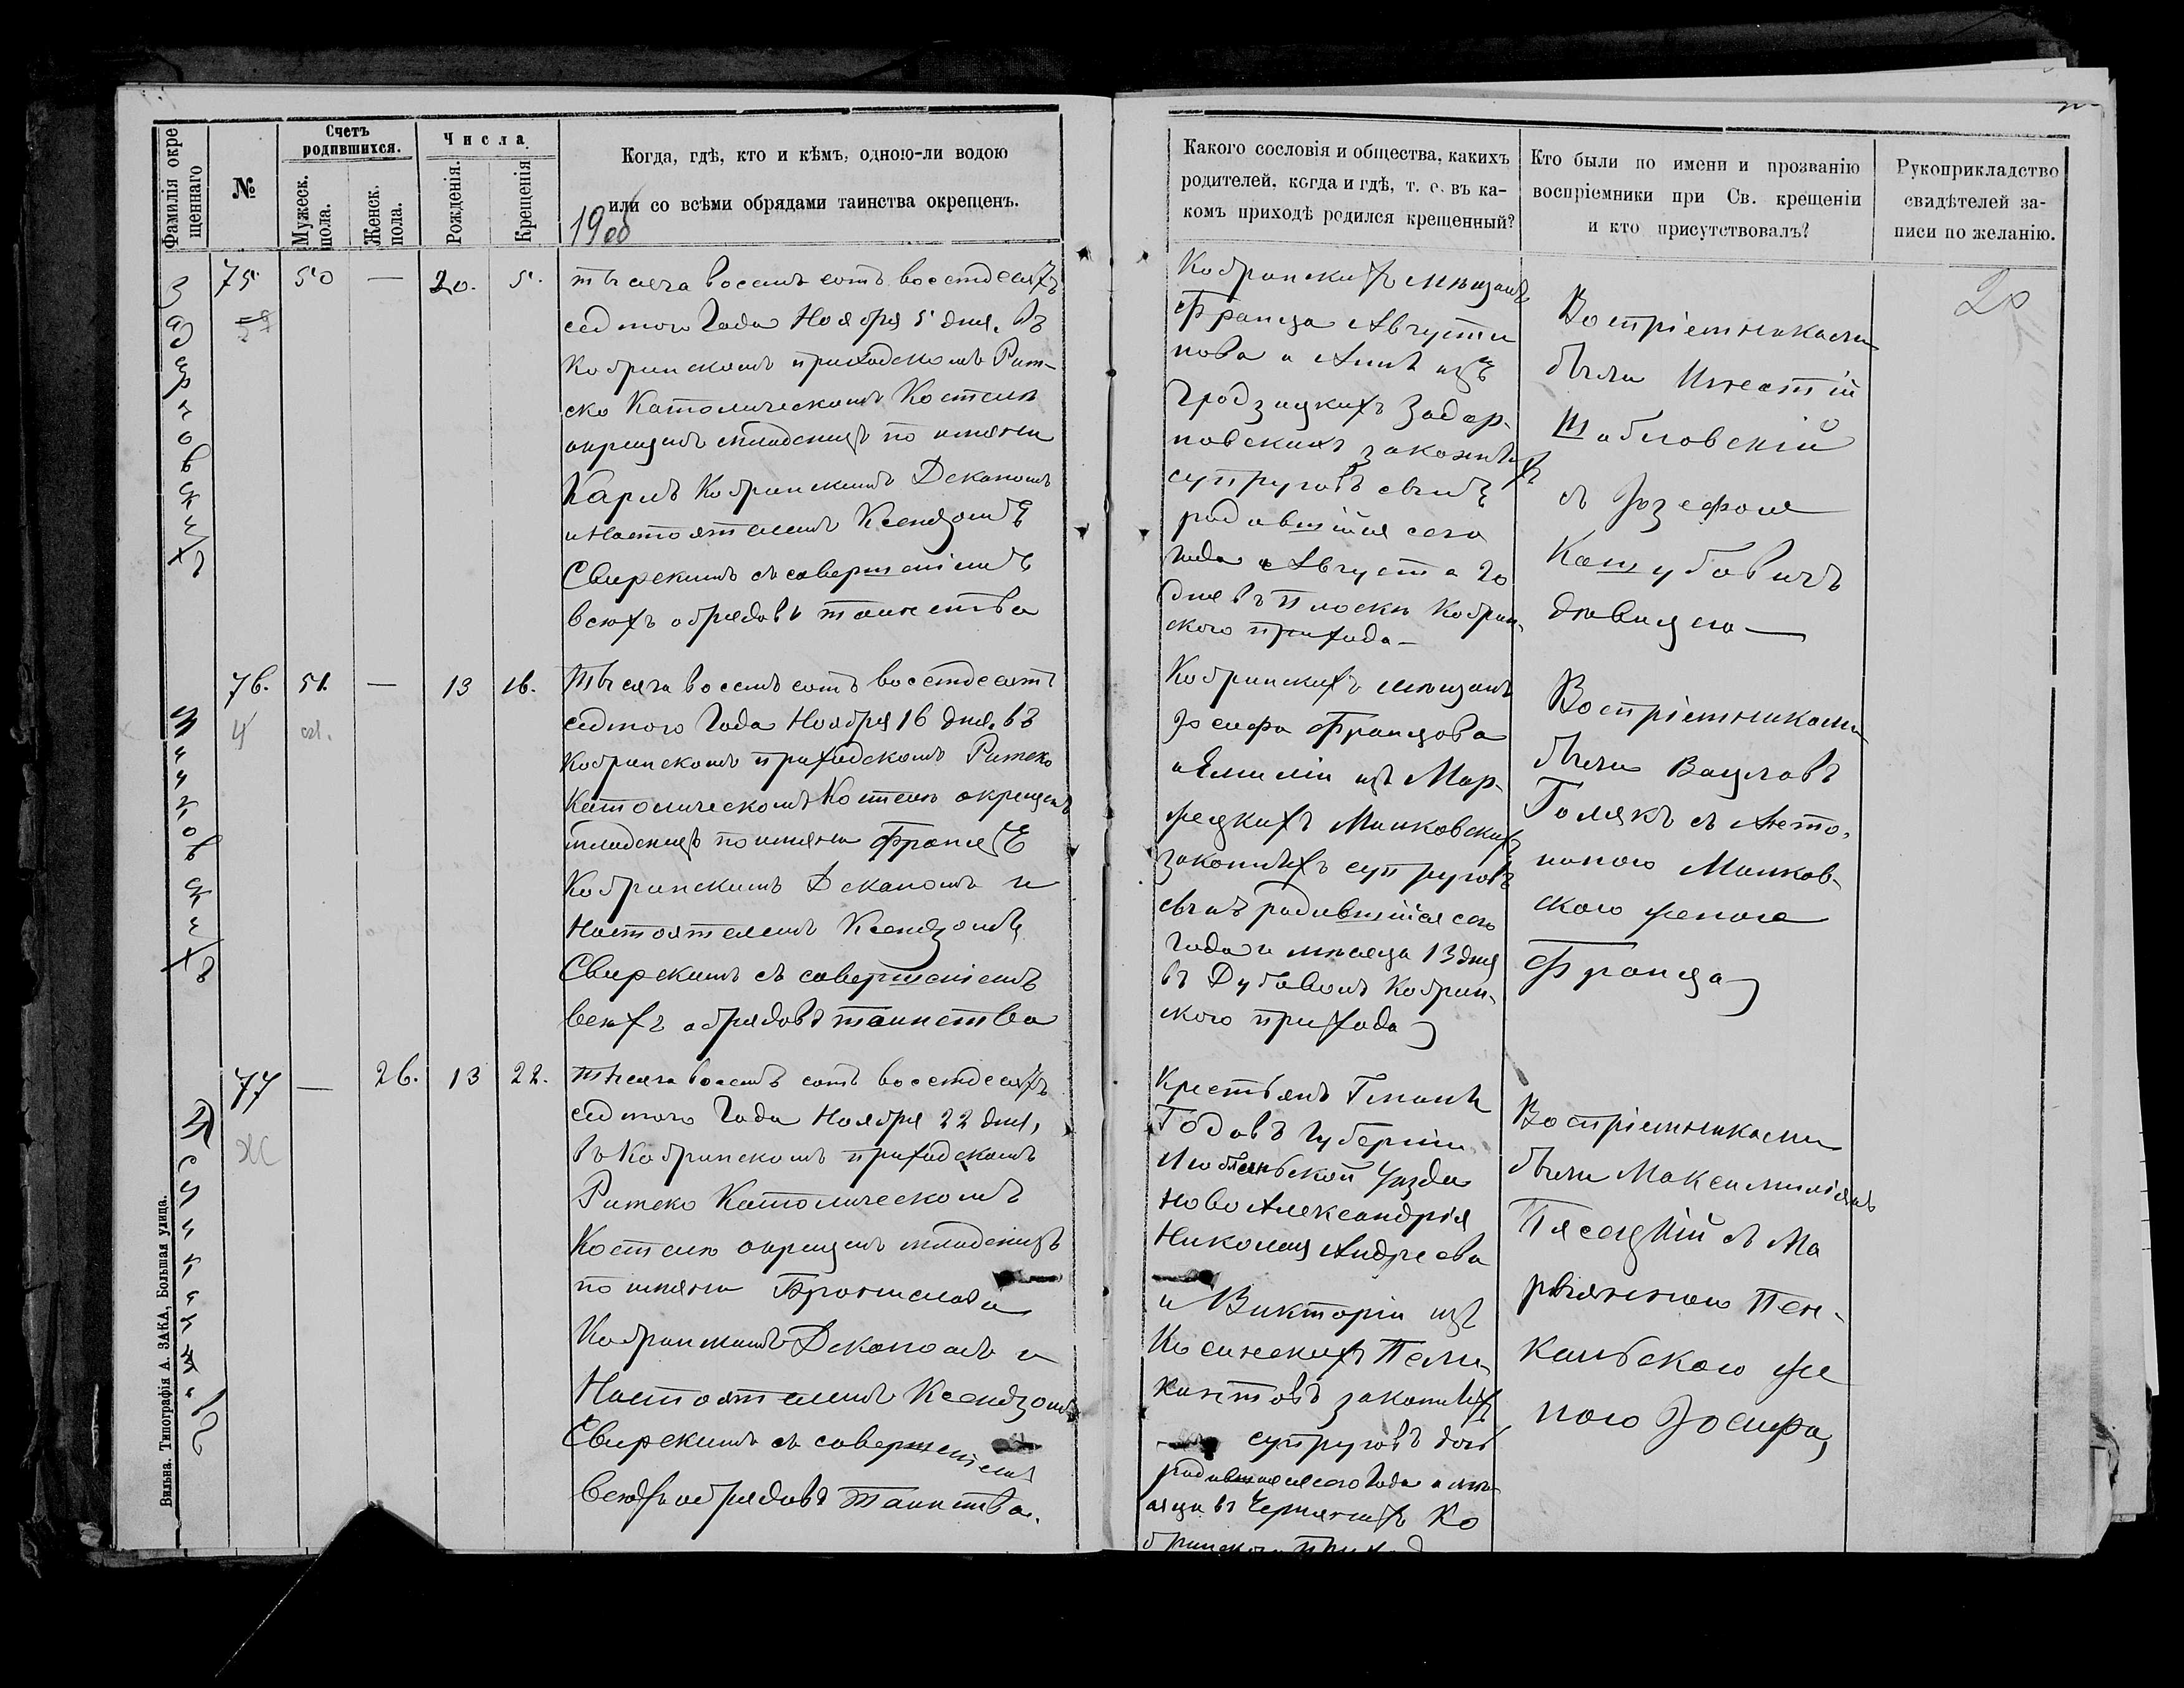 Фамилія окре
щеннаго
№
Счетъ
родившихся.
Мужеск.
пола.
Женск.
пола.
Числа
Рожденія.
Крещенія
Когда, гдѣ, кто и кѣмъ, одною-ли водою
или со всѣми обрядами таинства окрещенъ.
19об
Какого сословія и общества, какихъ
родителей, когда и гдѣ, т. е. въ ка-
комъ приходѣ родился крещенный?
Кто были по имени и прозванію
воспріемники при Св. крещеніи
и кто присутствовалъ?
Рукоприкладство
свидѣтелей за-
писи по желанію.
20
75 50 — 20. 5.
Тысяча восемь сотъ восемдесятъ
седмого Года Ноября 5 дня. Въ
Кобринскомъ приходскомъ Рим-
ско Католическомъ Костелѣ
окрещенъ младенецъ по имени
Карлъ Кобринскимъ Деканомъ
и Настоятелемъ Ксендзомъ
Свирскимъ съ совершеніемъ
всѣхъ обрядовъ таинства
Кобринскихъ мѣщанъ
Франца Августи
нова и Анны изъ
Гродзицкихъ Задар-
новскихъ законныхъ
супруговъ сынъ
родившійся сего
Года Августа 20
дня въ Плоски Кобрин-
ского прихода —
Воспріемниками
были Игнатій
Шабловскій
съ Іозефою
Кашубовичъ
дѣвицею —
76. 51. — 13 16.
Тысяча восемь сотъ восемдесятъ
седмого Года Ноября 16 дня. въ
Кобринскомъ приходскомъ Римско
Католическомъ Костелѣ окрещенъ
младенецъ по имени Францъ
Кобринскимъ Деканомъ и
Настоятелемъ Ксендзомъ
Свирскимъ съ совершеніемъ
всѣхъ обрядовъ таинства
Кобринскихъ мѣщанъ
Іосифа Францова
и Емиліи изъ Мар-
жецкихъ Маньковскихъ
законныхъ супруговъ
сынъ родившійся сего
Года и мѣсяца 13 дня
въ Дубовомъ Кобрин-
ского прихода
Воспріемниками
были Вацлавъ
Голякъ съ Анто-
ниною Маньков-
скою женою
Франца
77 — 26. 13 22.
Тысяча восемь сотъ восемдесятъ
седмого Года Ноября 22 дня,
въ Кобринскомъ приходскомъ
Римско Католическомъ
Костелѣ окрещенъ младенецъ
по имени Бронислава
Кобринскимъ Деканомъ и
Настоятелемъ Ксендзомъ
Свирскимъ съ совершеніемъ
всѣхъ обрядовъ таинства.
Крестьянъ Гмины
Годовъ Губерніи
Люблинской Уѣзда
Ново Александрія
Николая Андреева
и Викторіи изъ
Косинскихъ
законныхъ
супруговъ дочь
родившаяся сего Года и мѣ-
сяца въ Чернянахъ Ко
бринского приход
Воспріемниками
были Максимиліянъ
Пясецкій съ Ма
рьянною Пен-
кальскою же
ною Іосифа,
Вильна. Типографія А. ЗАКА, Большая улица.